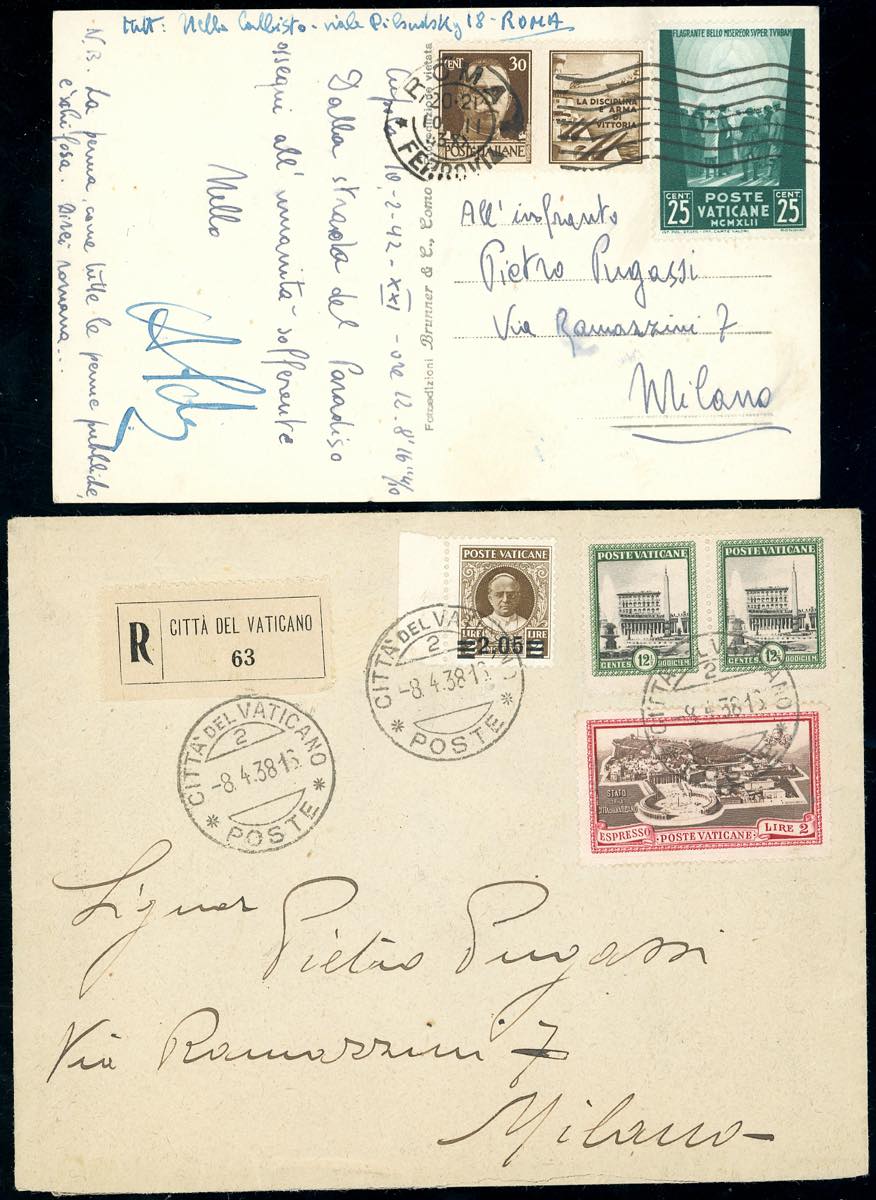 Mitt: Nello Callisto - viale Pilsudsky 18 - ROMA
N.B. La penna, come tutte le penne pubbliche,
è schifosa. Direi romana...
10-2-42-XXI - ore 12-8'16"4/10
Dalla strada del Paradiso
ossequi all'umanità sofferente
Nello
Fotoedizioni Brunner & C., Como
riproduzione vietata
CENT 30
POSTE ITALIANE
LA DISCIPLINA
E ARMA
DI
VITTORIA
ROMA
20-21
FERROVIA
FLAGRANTE BELLO MISEREOR SVPER TVRBAM
CENT. 25
POSTE
VATICANE
MCMXLII
CENT. 25
All'infranto
Pietro Pugassi
Via Ramazzini 7
Milano
R
CITTÀ DEL VATICANO
63
POSTE VATICANE
LIRE LIRE
2.05
POSTE VATICANE
CENTES 12½ DODICI EM.
POSTE VATICANE
CENTES 12½ DODICI EM.
CITTÀ DEL VATICANO
2
-8.4.38 16
POSTE
CITTÀ DEL VATICANO
2
-8.4.38 16
POSTE
CITTÀ DEL VATICANO
2
-8.4.38 16
STATO
DELLA
CITTÀ DEL VATICANO
ESPRESSO POSTE VATICANE LIRE 2
Signor
Pietro Pugassi
Via Ramazzini 7
Milano